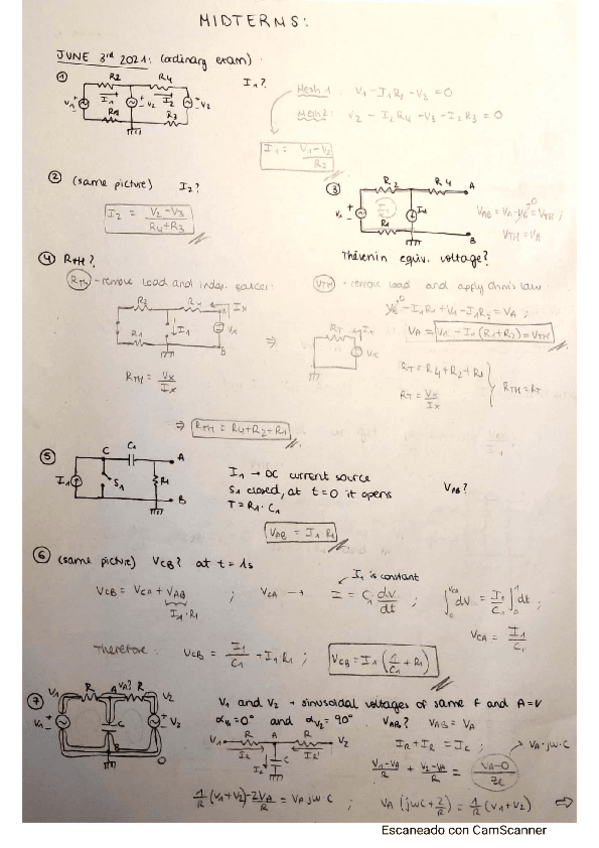 MIDTERMS:
JUNE 3rd 2021: (ordinary exam)
① I1?
R2 R4
V1 I1 V2 I2 V3
R1 R3
Mesh 1: V1 - I1R2 - V2 = 0
Mesh 2: V2 - I2R4 - V3 - I2R3 = 0
I1 = V1-V2 / R2
② (same picture) I2?
I2 = V2-V3 / R4+R3
③
R2 R4 A
V1 I1
R1 B
VAB = VA - VB = VTH ;
VTH = VA
Thévenin equiv. voltage?
④ RTH?
RTH - remove load and indep. sources:
VTH - remove load and apply Ohm's law
R2 R4 Ix
R1 I1 Vx
B
⇒
RT Ix
Vx
VA = V1 - I1(R1+R2) = VTH
RT = R4+R2+R1
RT = Vx/Ix
RTH = RT
RTH = Vx/Ix
⇒ RTH = R4+R2+R1
⑤
C C1 A
I1 S1 R1
B
I1 → DC current source
S1 closed, at t=0 it opens
T = R1 · C1
VAB?
VAB = I1 R1
⑥ (same picture) VCB? at t = 1s
I1 is constant
VCB = VCA + VAB ; VCA → I = C1 dv/dt ; ∫dV = I1/C1 ∫dt ;
I1·R1
VCA = I1/C1
Therefore: VCB = I1/C1 + I1 R1 ; VCB = I1 (1/C1 + R1)
⑦
V1 R A VA? R V2
C
B
V1 and V2 → sinusoidal voltages of same f and A=V
αV1=0° and αV2=90°. VAB? VAB = VA
V1 R A R V2
C
IR + IR = IC ; VA·jωC
V1-VA/R + V2-VA/R = VA-0/Zc
1/R (V1+V2) - 2VA/R = VA jωC ; VA (jωC + 2/R) = 1/R (V1+V2) ⇒
Escaneado con CamScanner